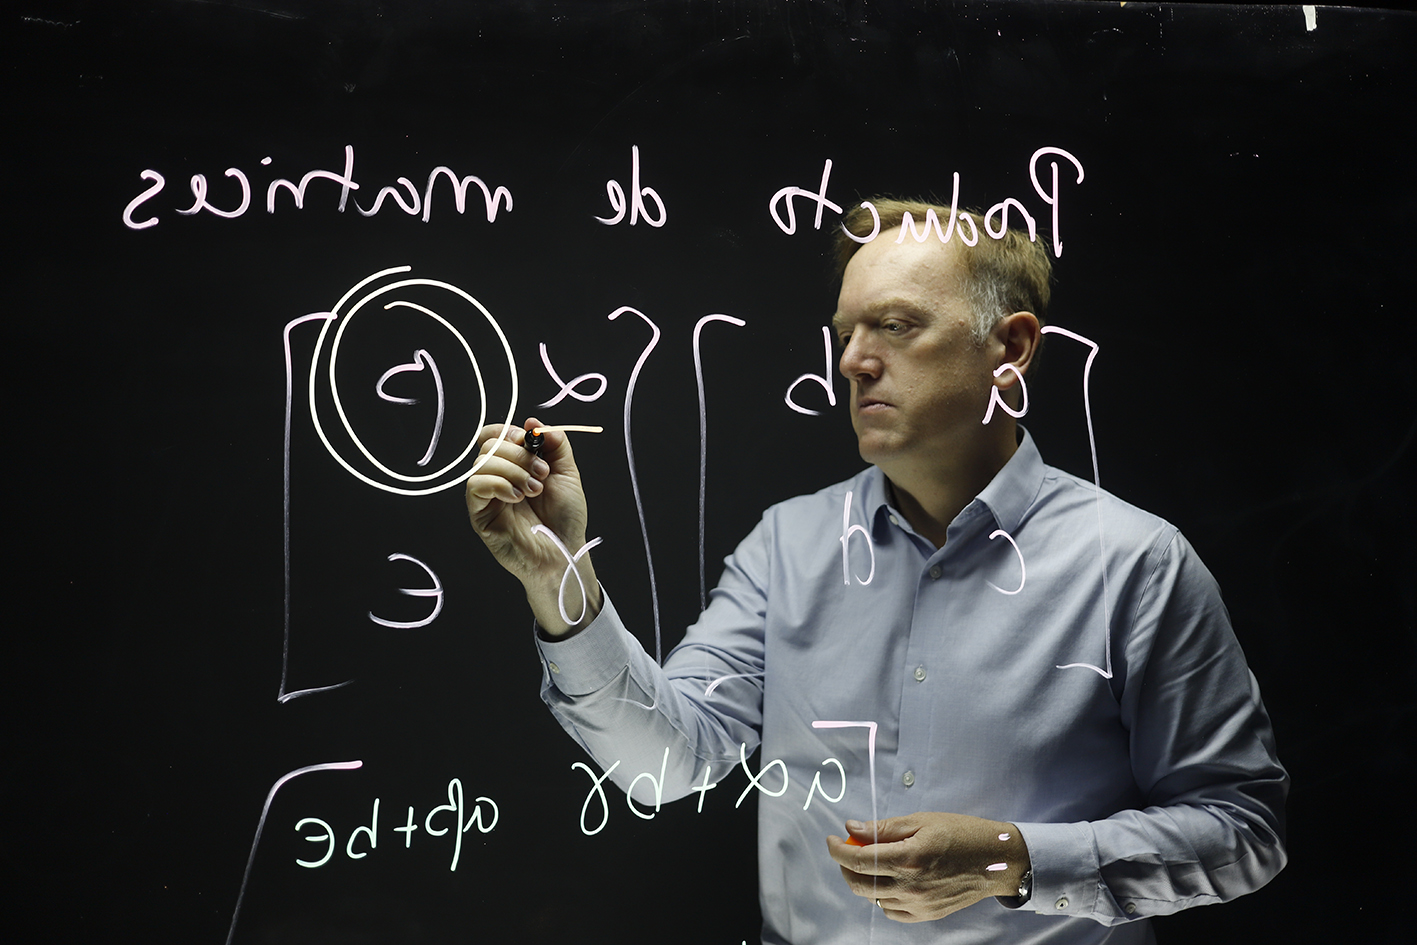 Producto de matrices
[ a b ] [ α β ]
[ c d ] [ γ ε ]
= [ aα+bγ aβ+bε